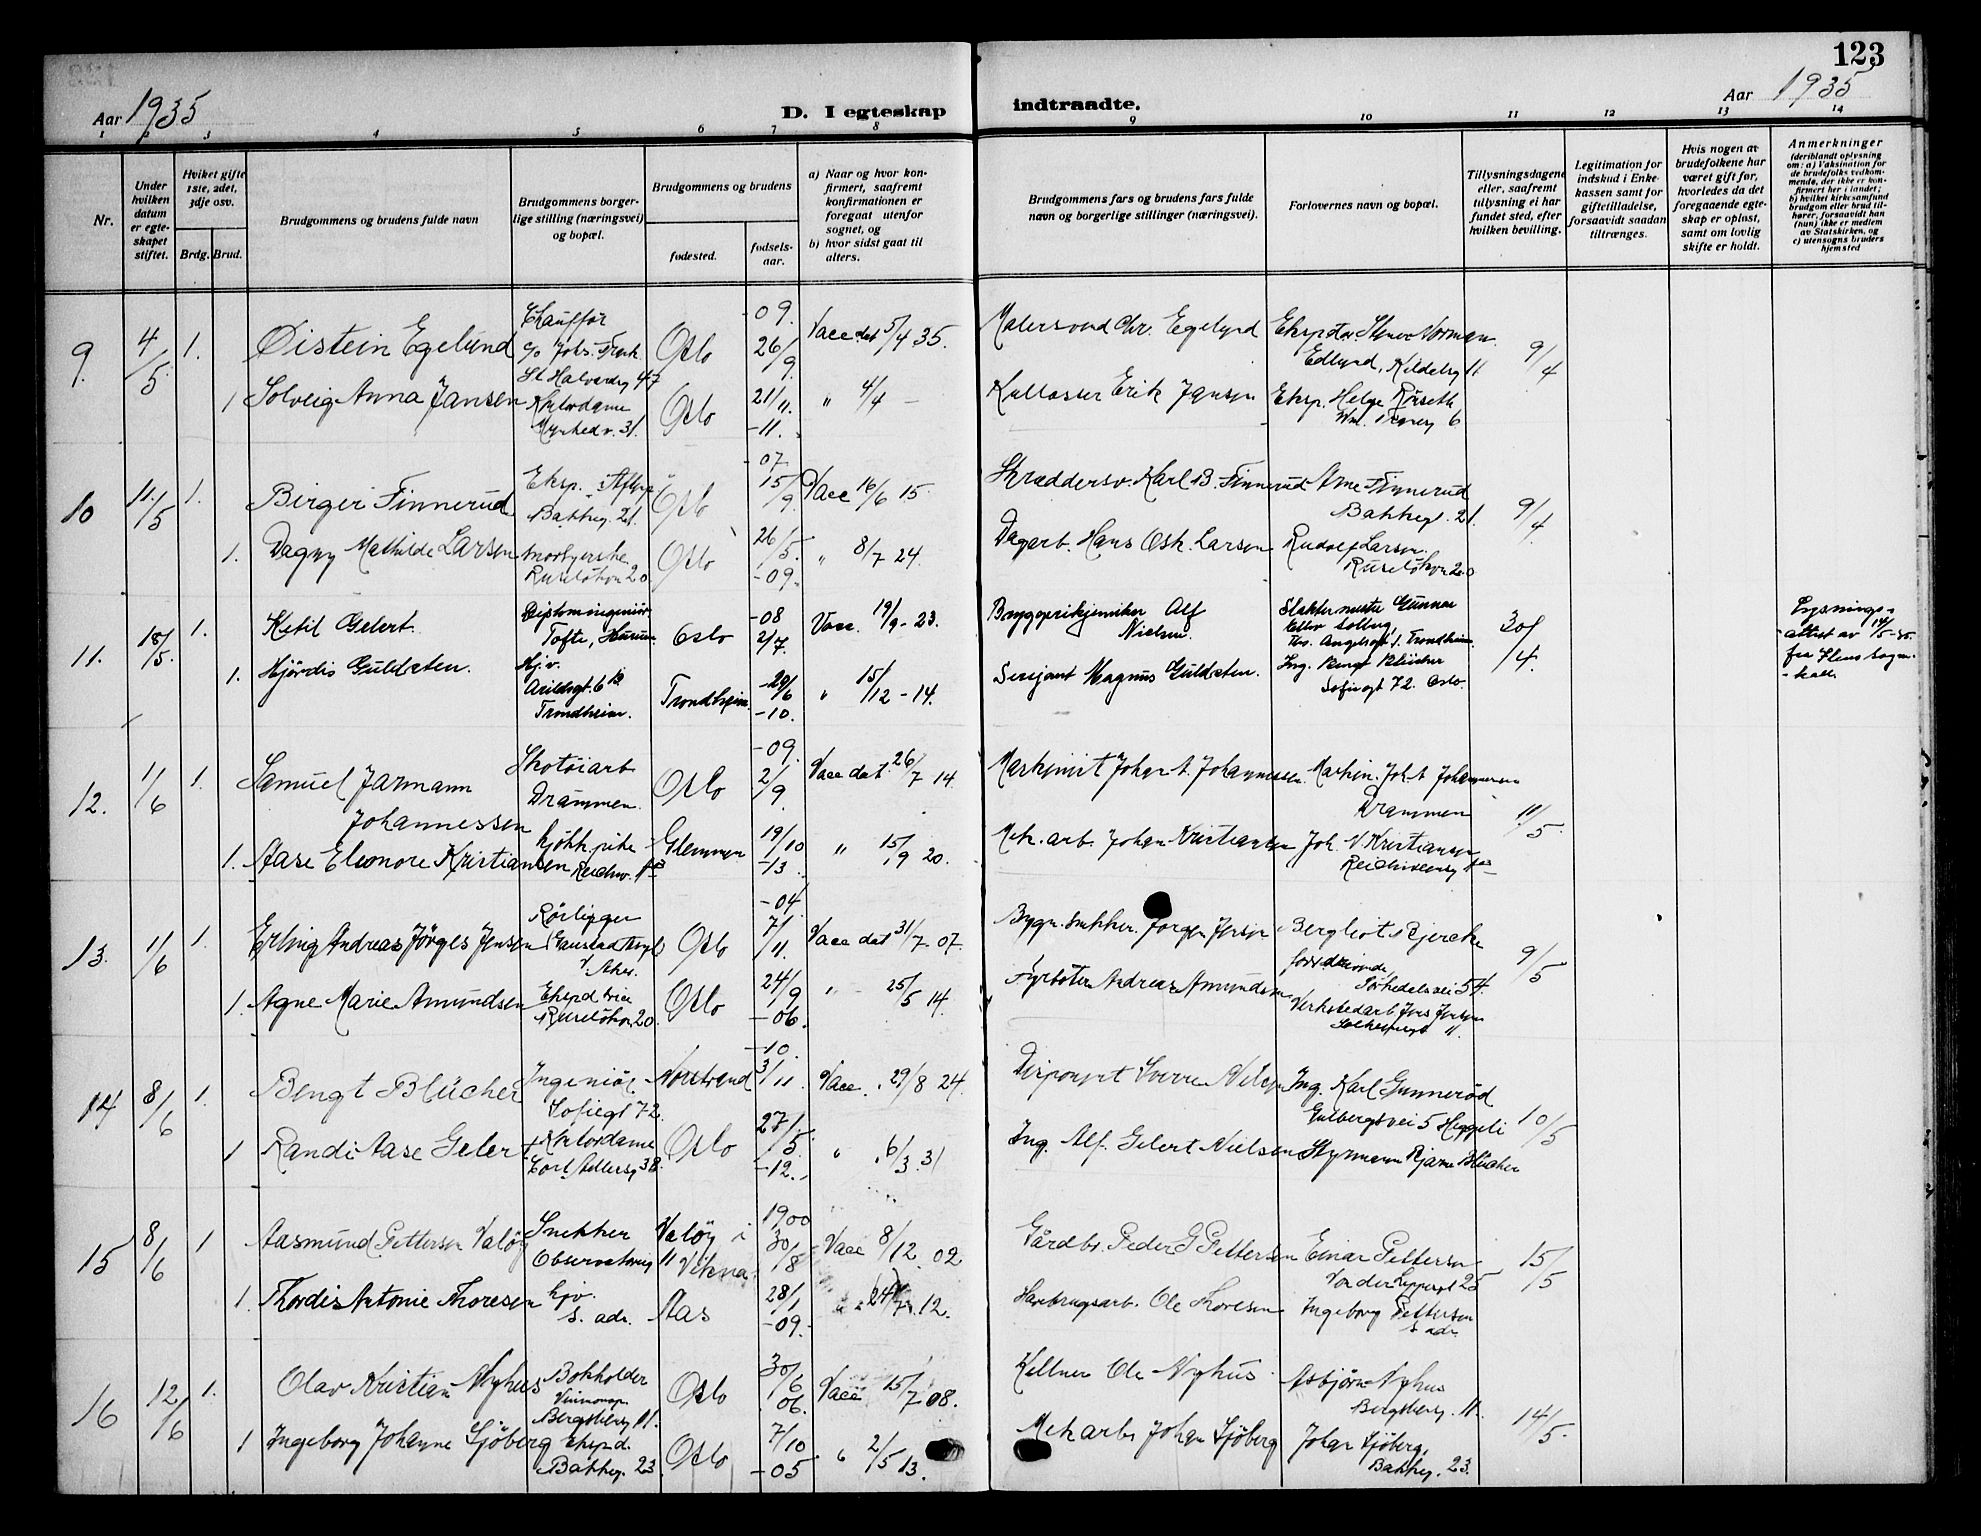 123
Aar 1935
D. I egteskap indtraadte.
Aar 1935
1 2 3 4 5 6 7 8 9 10 11 12 13 14
Nr.
Under hvilken datum er egteskapet stiftet.
Hvilket gifte 1ste, 2det, 3dje osv.
Brdg. Brud.
Brudgommens og brudens fulde navn
Brudgommens borgerlige stilling (næringsvei) og bopæl.
Brudgommens og brudens
fødested.
fødselsaar.
a) Naar og hvor konfirmert, saafremt konfirmationen er foregaat utenfor sognet, og
b) hvor sidst gaat til alters.
Brudgommens fars og brudens fars fulde navn og borgerlige stillinger (næringsvei).
Forlovernes navn og bopæl.
Tillysningsdagene eller, saafremt tillysning ei har fundet sted, efter hvilken bevilling.
Legitimation for indskud i Enkekassen samt for giftetilladelse, forsaavidt saadan tiltrænges.
Hvis nogen av brudefolkene har været gift før, hvorledes da det foregaaende egteskap er opløst, samt om lovlig skifte er holdt.
Anmerkninger
(deriblandt oplysning om: a) Vaksination for de brudefolks vedkommende, der ikke er konfirmert her i landet; b) hvilket kirkesamfund brudgom eller brud tilhører, forsaavidt han (hun) ikke er medlem av Statskirken, og c) utensogns bruders hjemsted
9. 4/5 1. Øistein Egelund Chauffør Oslo -09. 26/9 Vacc. dat 5/4 35. Chr. Egelund 9/4
St Halvardsg 47
1 Solveig Anna Jansen Kontordame Oslo 21/11. -11. " 4/4 - Erik Jansen Eksp. Helge Rørseth
10 11/5 1. Birger Finnerud Eksp. i Aftenp. Oslo -07 15/9 Vacc 16/6 15. Skræddersv. Karl B. Finnerud Arne Finnerud 9/4
Bakkeg. 21. Bakkegt. 21.
1. Dagny Mathilde Larsen Oslo 26/5. -09. " 8/7 24. Dagarb. Hans Osk. Larsen Rudolf Larsen
Ruseløkvn 20 Ruseløkvn 20
11. 18/5. 1. Ketil Gelert. Diplomingeniør Oslo -08 2/7. Vacc. 19/9 - 23. Bryggerikjemiker Alf Nielsen. Slaktermester Gunnar 30/4
Tofte, Hurum Solberg, Trondheim.
1. Hjørdis Guldsten. Hjv. Trondheim. 29/6 -10. " 15/12 - 14. Sersjant Magnus Guldsten. Ing. Bengt Blücher
Arildsgt. 6 B Trondheim. Sofiegt 72. Oslo.
Lysningsattest av 14/5-35. fra Ilens sogn
12. 1/6 1. Samuel Jarmann Johannessen Skotøiarb Drammen. Oslo -09. 2/9 Vacc dat. 26/7 14. Johan A. Johannessen Maskin. Joh A Johannessen 11/5.
Drammen
1. Aase Eleonore Kristiansen kjøkk.pike Glemmen 19/10 -13. " 15/9 20. Mek. arb. Johan Kristiansen Joh. N Kristiansen
13. 1/6 1. Erling Andreas Jørges Jensen Rørlegger Oslo -04. 7/11. Vacc dat 31/7. 07. Bygn. snekker. Jørgen Jensen Bergliot Bjercke 9/5
Gaustad v/ Aker. Sørkedalsvei 54.
1. Agne Marie Amundsen Oslo 24/9 -06. " 25/5 14. Fyrbøter Andreas Amundsen Verkstedarb Jens Jensen
Ruseløkvn 20. 11.
14 8/6 1. Bengt Blücher Ingeniør Nordstrand -10. 3/11. Vacc. 29/8 24. Disponent Sverre Nilsen Ing. Karl Gunnerød 10/5
Sofiegt 72. Gulbergsvei 5 Heggeli
1 Randi Aase Gelert Kontordame Oslo 27/5. -12. " 6/3 31 Ing. Alf. Gelert Nielsen Styrmann Bjarne Blücher
Cort Adlersg 38.
15 8/6 1 Aasmund Pettersen Valøy Snekker Valøy i Vikna 1900 30/8 Vacc 8/12. 02 Gårdbr. Peder G Pettersen Einar Pettersen 15/5
Observatorieg 11 Von der Lippesgt 25
1. Thordis Antonie Thoresen hjv. Aas 28/1 -09. 24/7. 12. Ole Thoresen Ingeborg Pettersen
s. adr. s. adr.
16 12/6 1. Olav Kristian Nyhus Bokholder Oslo 30/6 06. Vacc 15/7 08. Kellner Ole Nyhus Asbjørn Nyhus 14/5.
Bergslieng 11. Bergslieng. 11.
1 Ingeborg Johanne Sjöberg Eksp.d. Oslo 7/10 -05 " 2/5 13. Mek arb. Johan Sjöberg Johan Sjöberg,
Bakkeg. 23. Bakkeg. 23.